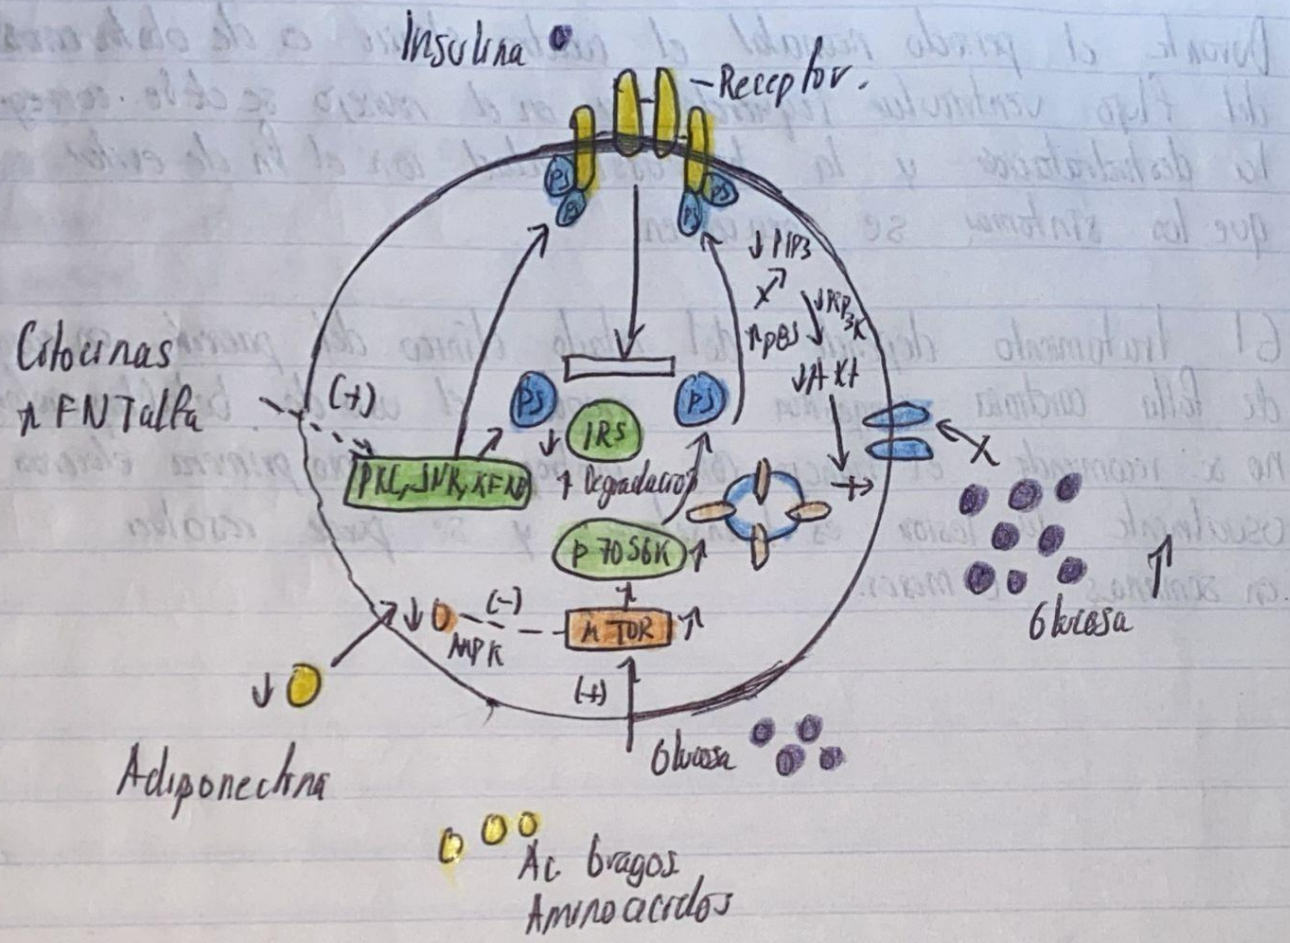 Insulina
Receptor.
PS
PS
PS
PS
↓ PIP3
↑ p85
↓ AKT
Citocinas
↑ FNTalfa
(+)
PS
PS
↓ IRS
↑ Degradación
p70S6K ↑
(-)
AMPK
mTOR ↑
(+)
↓
Adiponectina
Glucosa
Glucosa
Ac Grasos
Aminoacidos